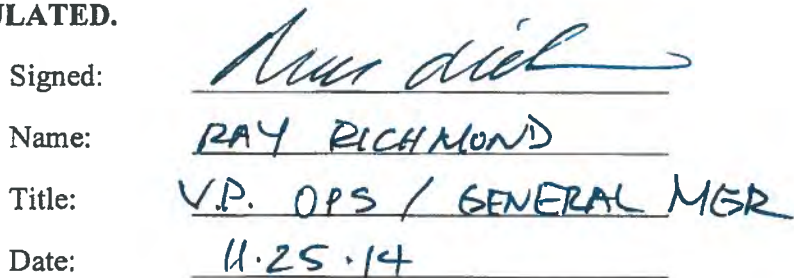 ULATED.
Signed:
Name: RAY RICHMOND
Title: V.P. OPS / GENERAL MGR
Date: 11.25.14